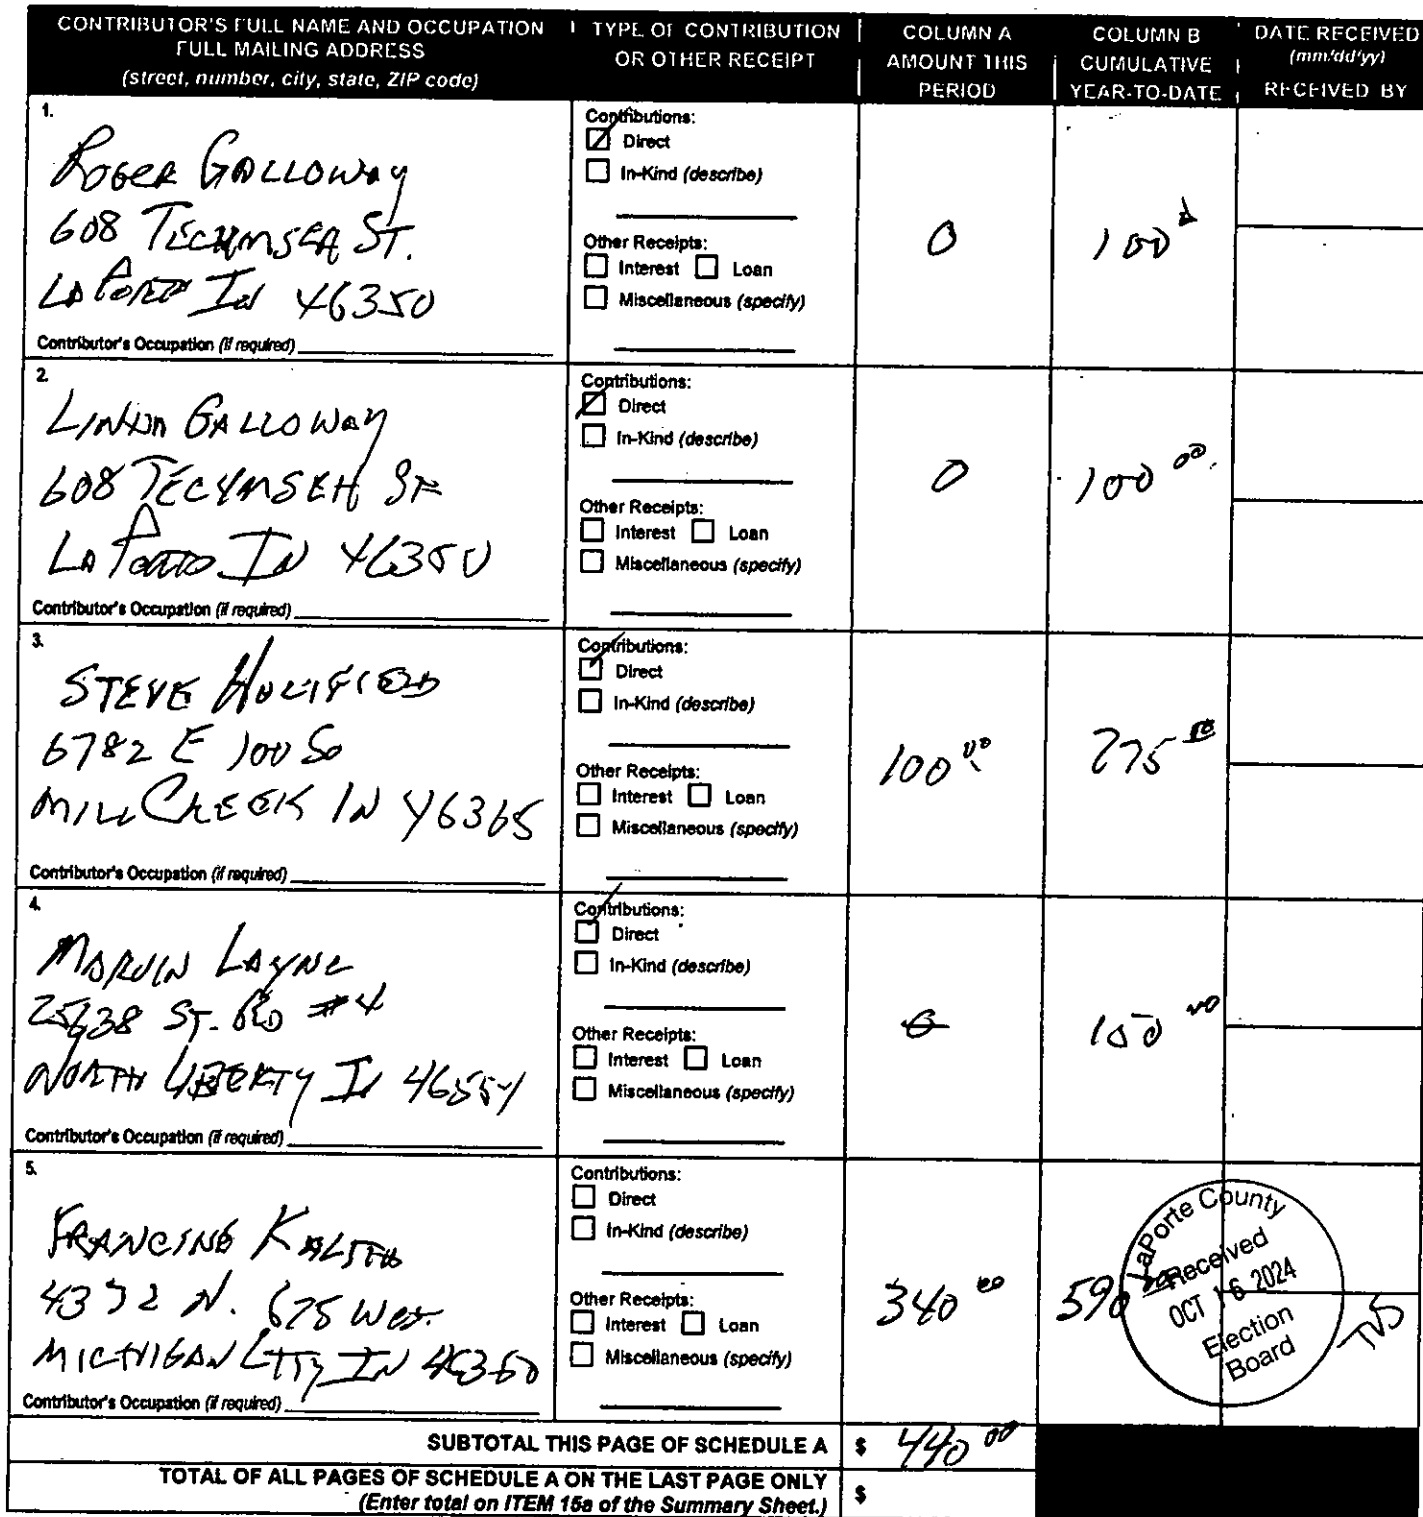 CONTRIBUTOR'S FULL NAME AND OCCUPATION
FULL MAILING ADDRESS
(street, number, city, state, ZIP code)
TYPE OF CONTRIBUTION
OR OTHER RECEIPT
COLUMN A
AMOUNT THIS
PERIOD
COLUMN B
CUMULATIVE
YEAR-TO-DATE
DATE RECEIVED
(mm/dd/yy)
RECEIVED BY
1.
ROGER GALLOWAY
608 ST.
LAPORTE IN 46350
Contributor's Occupation (if required)
Contributions:
Direct
In-Kind (describe)
Other Receipts:
Interest Loan
Miscellaneous (specify)
0
100
2.
GALLOWAY
608 ST
LAPORTE IN 46350
Contributor's Occupation (if required)
Contributions:
Direct
In-Kind (describe)
Other Receipts:
Interest Loan
Miscellaneous (specify)
0
100 00
3.
STEVE
6782 E 100 So
MILL CREEK IN 46365
Contributor's Occupation (if required)
Contributions:
Direct
In-Kind (describe)
Other Receipts:
Interest Loan
Miscellaneous (specify)
100 00
275
4.
MARVIN LAYNE
ST. RD #4
NORTH LIBERTY IN 46554
Contributor's Occupation (if required)
Contributions:
Direct
In-Kind (describe)
Other Receipts:
Interest Loan
Miscellaneous (specify)
0
5.
FRANCINE
N. 675 West
MICHIGAN CITY IN 46360
Contributor's Occupation (if required)
Contributions:
Direct
In-Kind (describe)
Other Receipts:
Interest Loan
Miscellaneous (specify)
340 00
590
LaPorte County
Received
OCT 16 2024
Election
Board
SUBTOTAL THIS PAGE OF SCHEDULE A $ 440 00
TOTAL OF ALL PAGES OF SCHEDULE A ON THE LAST PAGE ONLY
(Enter total on ITEM 15a of the Summary Sheet.) $